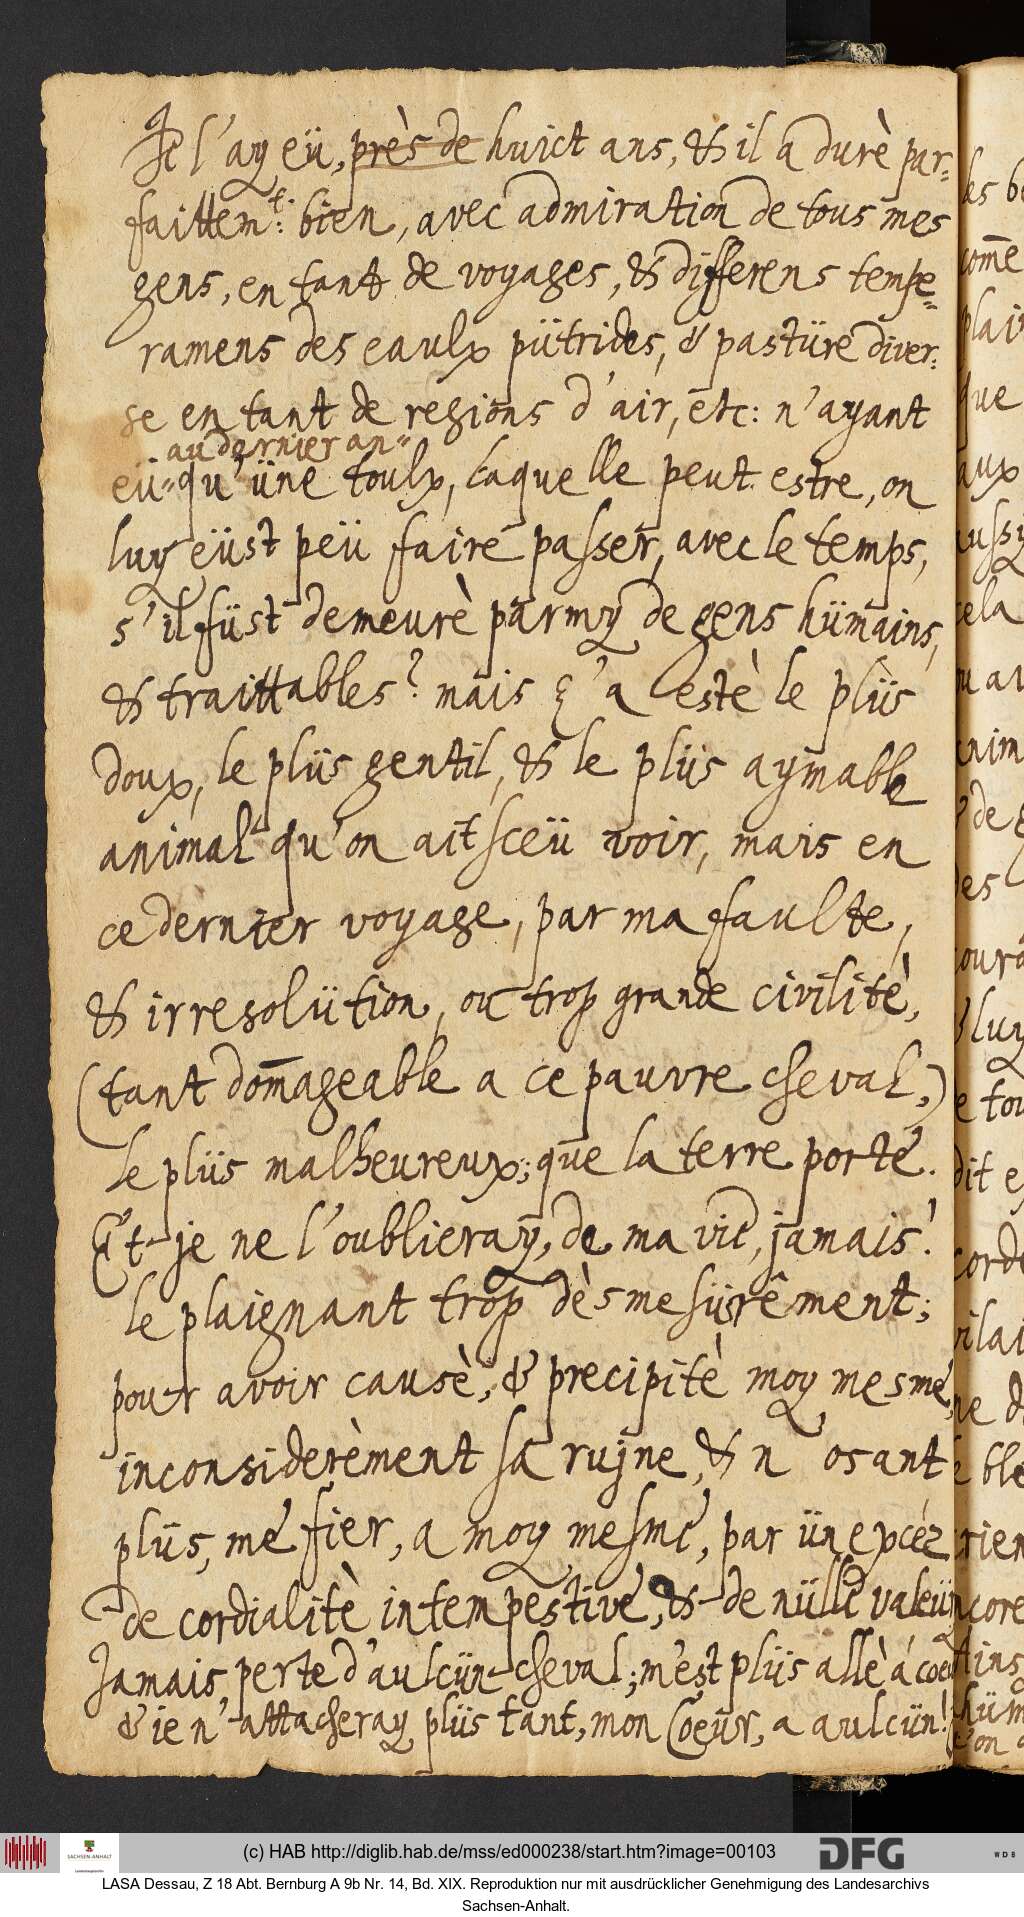 Je l'ay eü, près de huict ans, & il a durè par-
faittem.t: bien, avec admiration de tous mes
gens, en tant de voyages, & differens tempe-
ramens des eaulx pütrides, & pastüre diver-
se en tant de regions d'air, etc: n'ayant
au dernier an"
eü" qu'üne toulx, laquelle peut estre, on
luy eüst peü faire passer, avec le temps,
s'il füst demeurè parmy de gens hümains,
& traittables? mais ç'a estè le plüs
doux, le plüs gentil, & le plüs aymable
animal qu'on ait sceü voir, mais en
ce dernier voyage, par ma faulte,
& irresolütion, ou trop grande civilitè,
(tant dom̄ageable a ce pauvre cheval,)
le plüs malheureux; que la terre porte.
Et je ne l'oublieray, de ma vie, jamais!
le plaignant trop dèsmesürêment;
pour avoir causè, & precipitè moy mesme,
inconsiderèment sa rujne, & n osant
plüs, me fier, a moy mesme, par ün excéz
de cordialitè intempestive, & de nülle valeür
Jamais, perte d'aulcün cheval; m'est plüs allè á coe
& ie n'attacheray plüs tant, mon Coeür, a aulcün!
(c) HAB http://diglib.hab.de/mss/ed000238/start.htm?image=00103
DFG
WDB
SACHSEN-ANHALT
LASA Dessau, Z 18 Abt. Bernburg A 9b Nr. 14, Bd. XIX. Reproduktion nur mit ausdrücklicher Genehmigung des Landesarchivs
Sachsen-Anhalt.